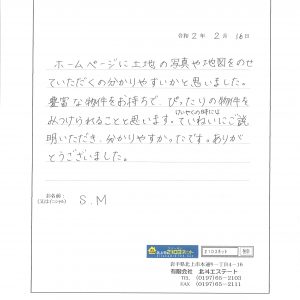 令和 2 年 2 月 16 日
ホームページに土地の写真や地図をのせ
ていただくの分かりやすいかと思いました。
豊富な物件をお持ちで、ぴったりの物件を
みつけられることと思います。ていねいにご説
けいやくの時には
明いただき、分かりやすかったです。ありが
とうございました。
お名前：
(又はイニシャル)
S.M
岩手県北上市本通り一丁目4－16
有限会社 北斗エステート
TEL (0197)65－2103
FAX (0197)65－2111